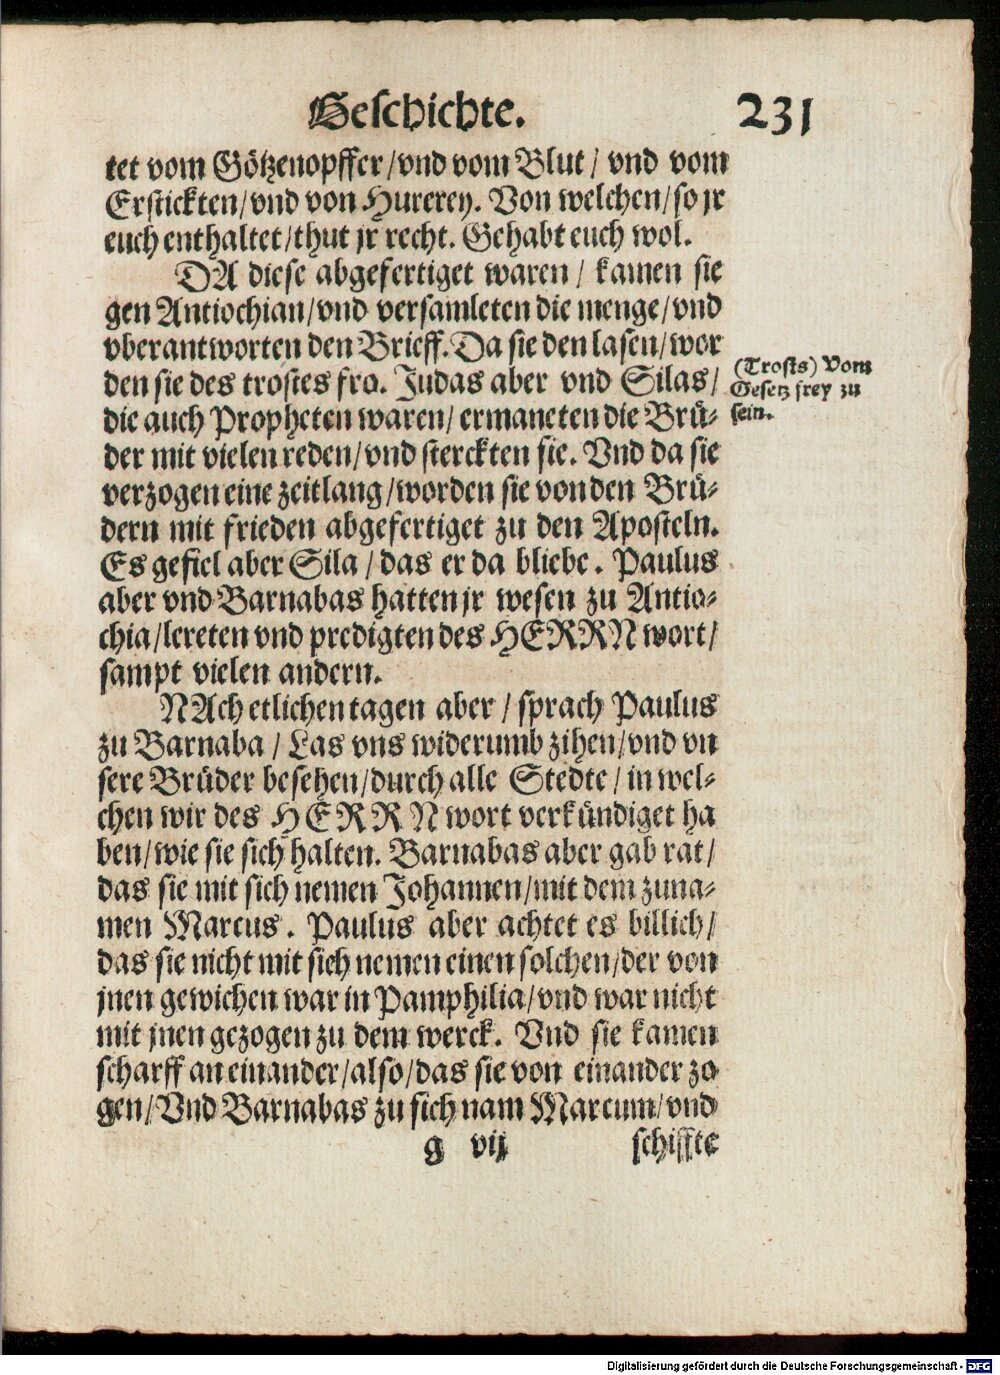 Geschichte. 231
tet vom Götzenopffer/vnd vom Blut/ vnd vom
Erstickten/vnd von Hurerey. Von welchen/so jr
euch enthaltet/thut jr recht. Gehabt euch wol.
DA diese abgefertiget waren/ kamen sie
gen Antiochian/vnd versamleten die menge/vnd
vberantworten den Brieff. Da sie den lasen/wor
den sie des trostes fro. Judas aber vnd Silas/
die auch Propheten waren/ ermaneten die Brü-
der mit vielen reden/vnd sterckten sie. Vnd da sie
verzogen eine zeitlang/worden sie von den Brü-
dern mit frieden abgefertiget zu den Aposteln.
Es gefiel aber Sila/das er da bliebe. Paulus
aber vnd Barnabas hatten jr wesen zu Antio-
chia/lereten vnd predigten des HERRN wort/
sampt vielen andern.
NAch etlichen tagen aber/ sprach Paulus
zu Barnaba/ Las vns widerumb zihen/vnd vn
sere Brüder besehen/durch alle Stedte/in wel-
chen wir des HERRN wort verkündiget ha
ben/wie sie sich halten. Barnabas aber gab rat/
das sie mit sich nemen Johannen/mit dem zuna-
men Marcus. Paulus aber achtet es billich/
das sie nicht mit sich nemen einen solchen/der von
jnen gewichen war in Pamphilia/vnd war nicht
mit jnen gezogen zu dem werck. Vnd sie kamen
scharff an einander/also/das sie von einander zo
gen/Vnd Barnabas zu sich nam Marcum/vnd
g vij schiffte
(Trosts) Vom
Gesetz frey zu
sein.
Digitalisierung gefördert durch die Deutsche Forschungsgemeinschaft - DFG